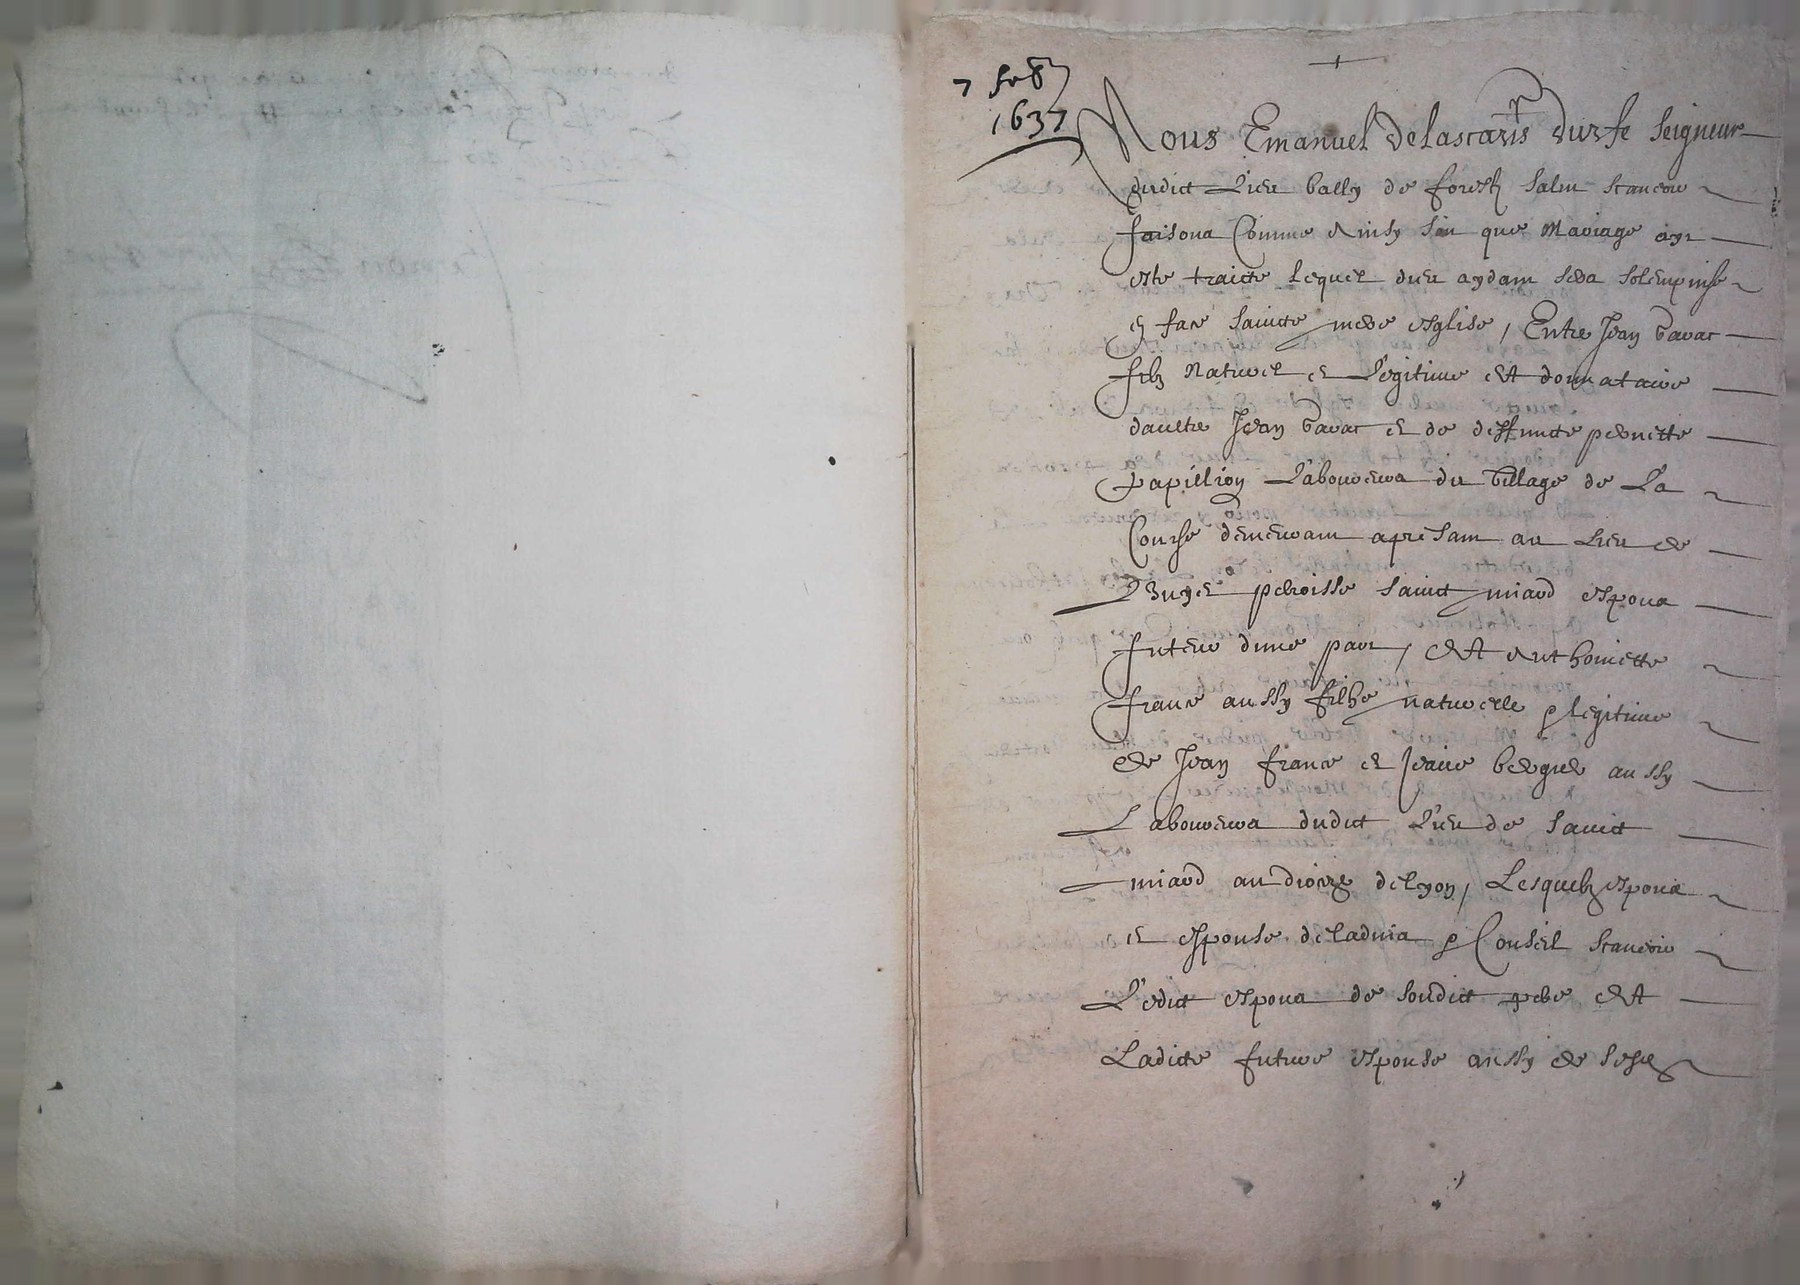 7 feb
1637
Nous Emanuel delascaris durfe seigneur
dudict Lieu bally de forestz salut scavoir
faisons Comme Ainsy soit que Mariage ayt
este traicte lequel dieu aydant sera solempnise
en face saincte mere esglise, Entre Jean
filz Naturel et Legitime et donnataire
daultre Jean et de deffuncte pernette
papillion Laboureurs du village de La
Course demeurant apresant au Lieu de
peroisse sainct miard espoux
futeur dune part, et Anthoinette
france aussy filhe naturelle et legitime
de Jean france et Jeanne bergier aussy
Laboureurs dudict Lieu de sainct
miard au dioceze delyon, Lesquelz espoux
et espouse deladvis et Conseil scavoir
Ledict espoux de sondict pere et
Ladicte future espouse aussy de sesd